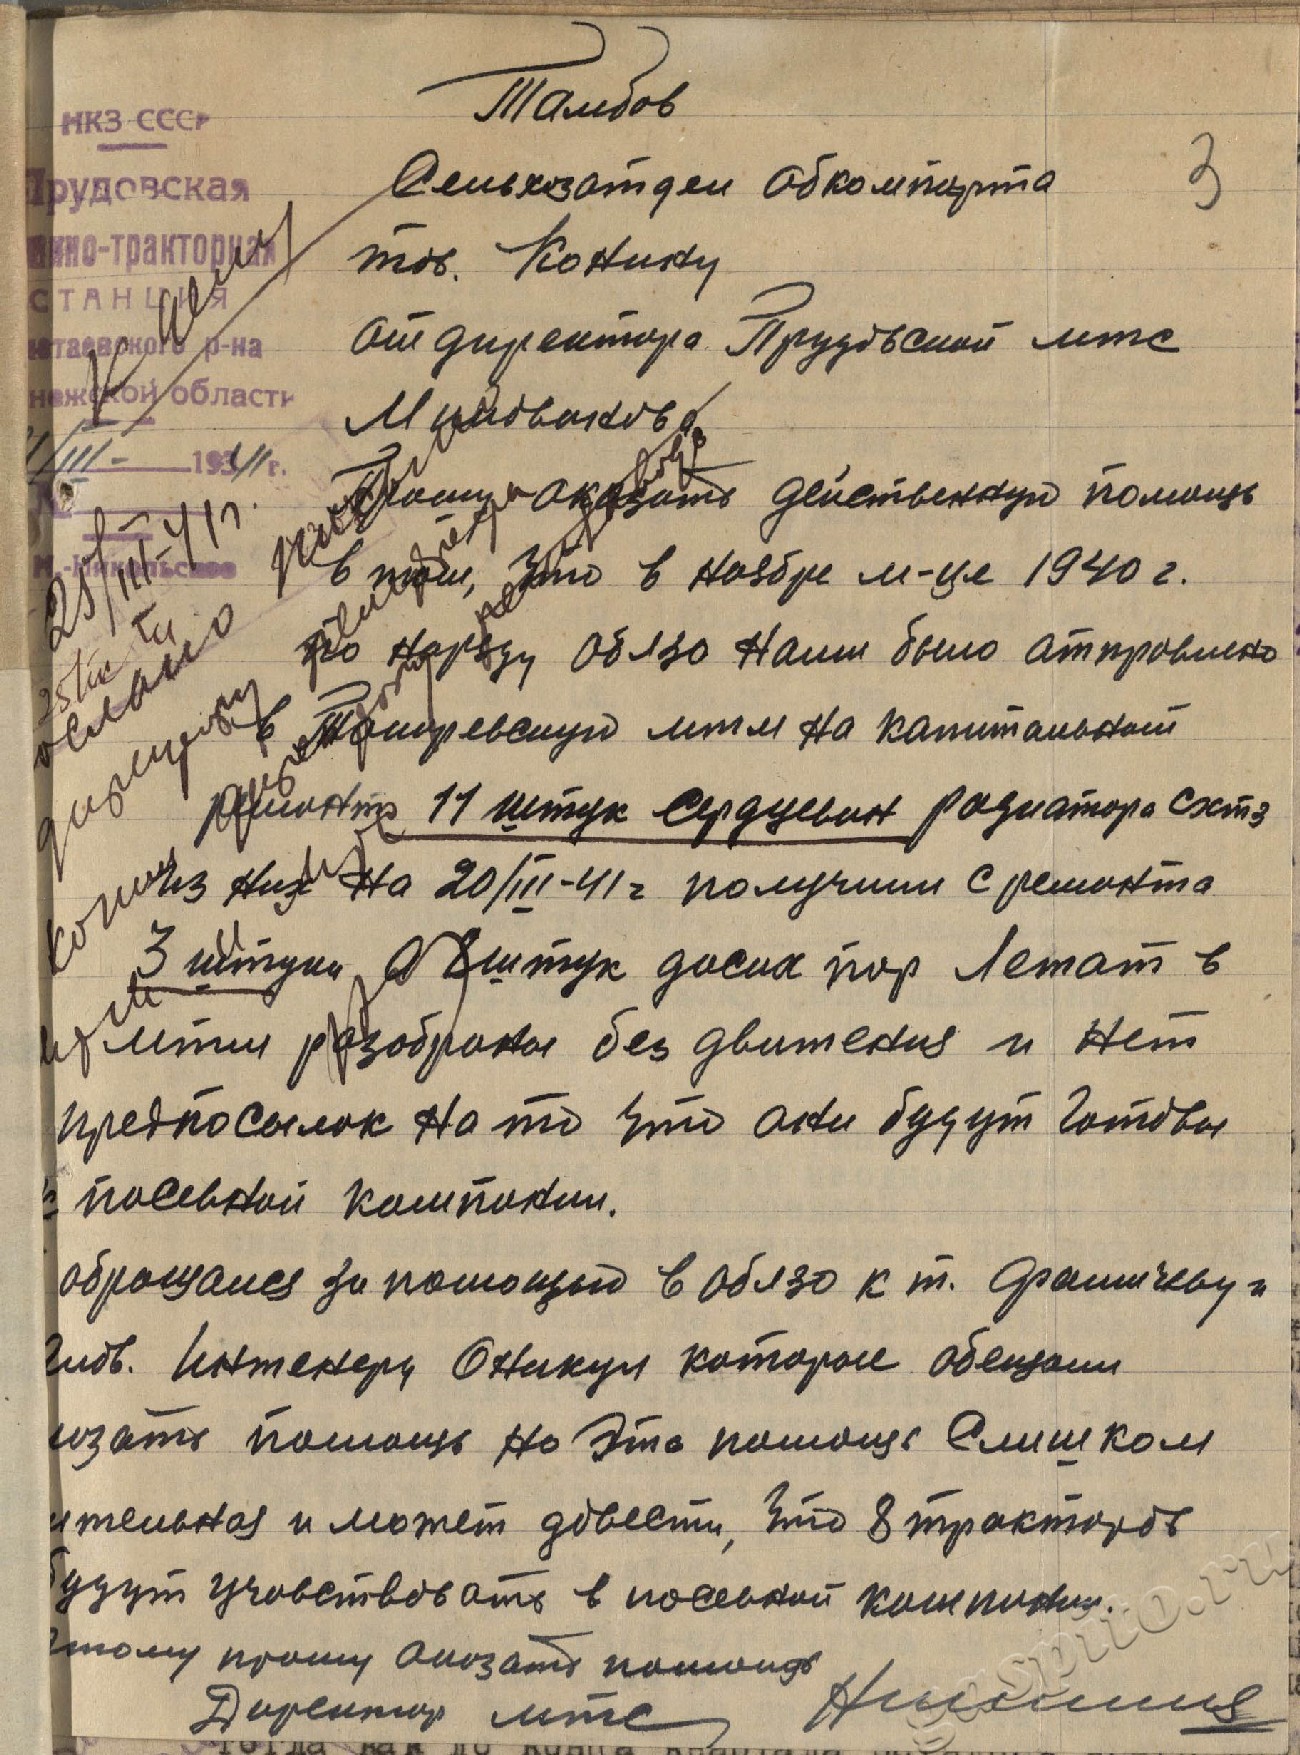 Тамбов
3
НКЗ СССР
Прудовская
шино-тракторная
СТАНЦИЯ
таевского р-на
нежской области
III- 1941 г.
№
Сельхозотдел обкомпарта
тов. Конину
от директора Прудовской мтс
Прошу оказать действенную помощь
в том, что в ноябре м-це 1940 г.
по наряду облзо нами было отправлено
в мтм на капитальный
ремонт 11 штук сердцевин радиатора схтз
из них на 20/III-41 г получили с ремонта
3 штуки а 8 штук досих пор лежат в
мтм разобраны без движения и нет
предпосылок на то что они будут готовы
к посевной компании.
обращался за помощью в облзо к т. Фомичеву и
глов. инженеру Оникул которые обещали
озать помощь но эта помощь слишком
ительная и может довести, что 8 тракторов
будут учовствовать в посевной компании.
этому прошу оказать помощь
Директор мтс
К делу
25/III-41 г.
послано
директору
копия
gaspito.ru
тогда как до конца квартала